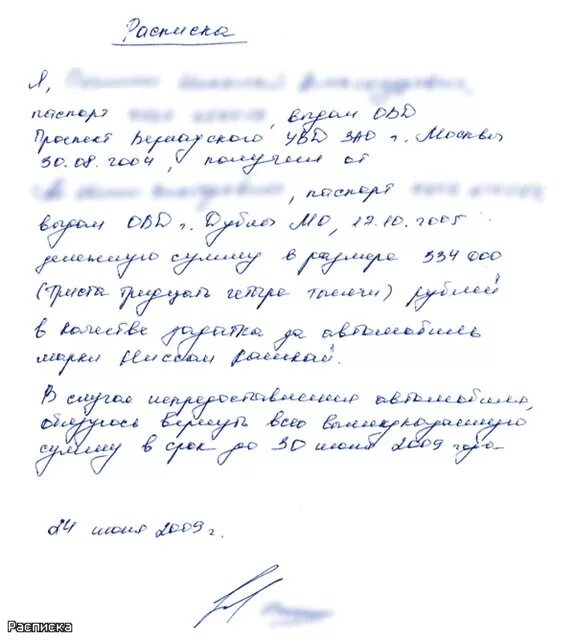 Расписка
Я,
паспорт , выдан ОВД
Проспект Вернадского УВД ЗАО г. Москвы
30.08.2004, получил от
, паспорт
выдан ОВД г. Дубны МО, 12.10.2005
денежную сумму в размере 334 000
(Триста тридцать четыре тысячи) рублей
в качестве задатка за автомобиль
марки Ниссан Кашкай.
В случае непредоставления автомобиля,
обязуюсь вернуть всю вышеуказанную
сумму в срок до 30 июня 2009 года
24 июня 2009 г.
Расписка